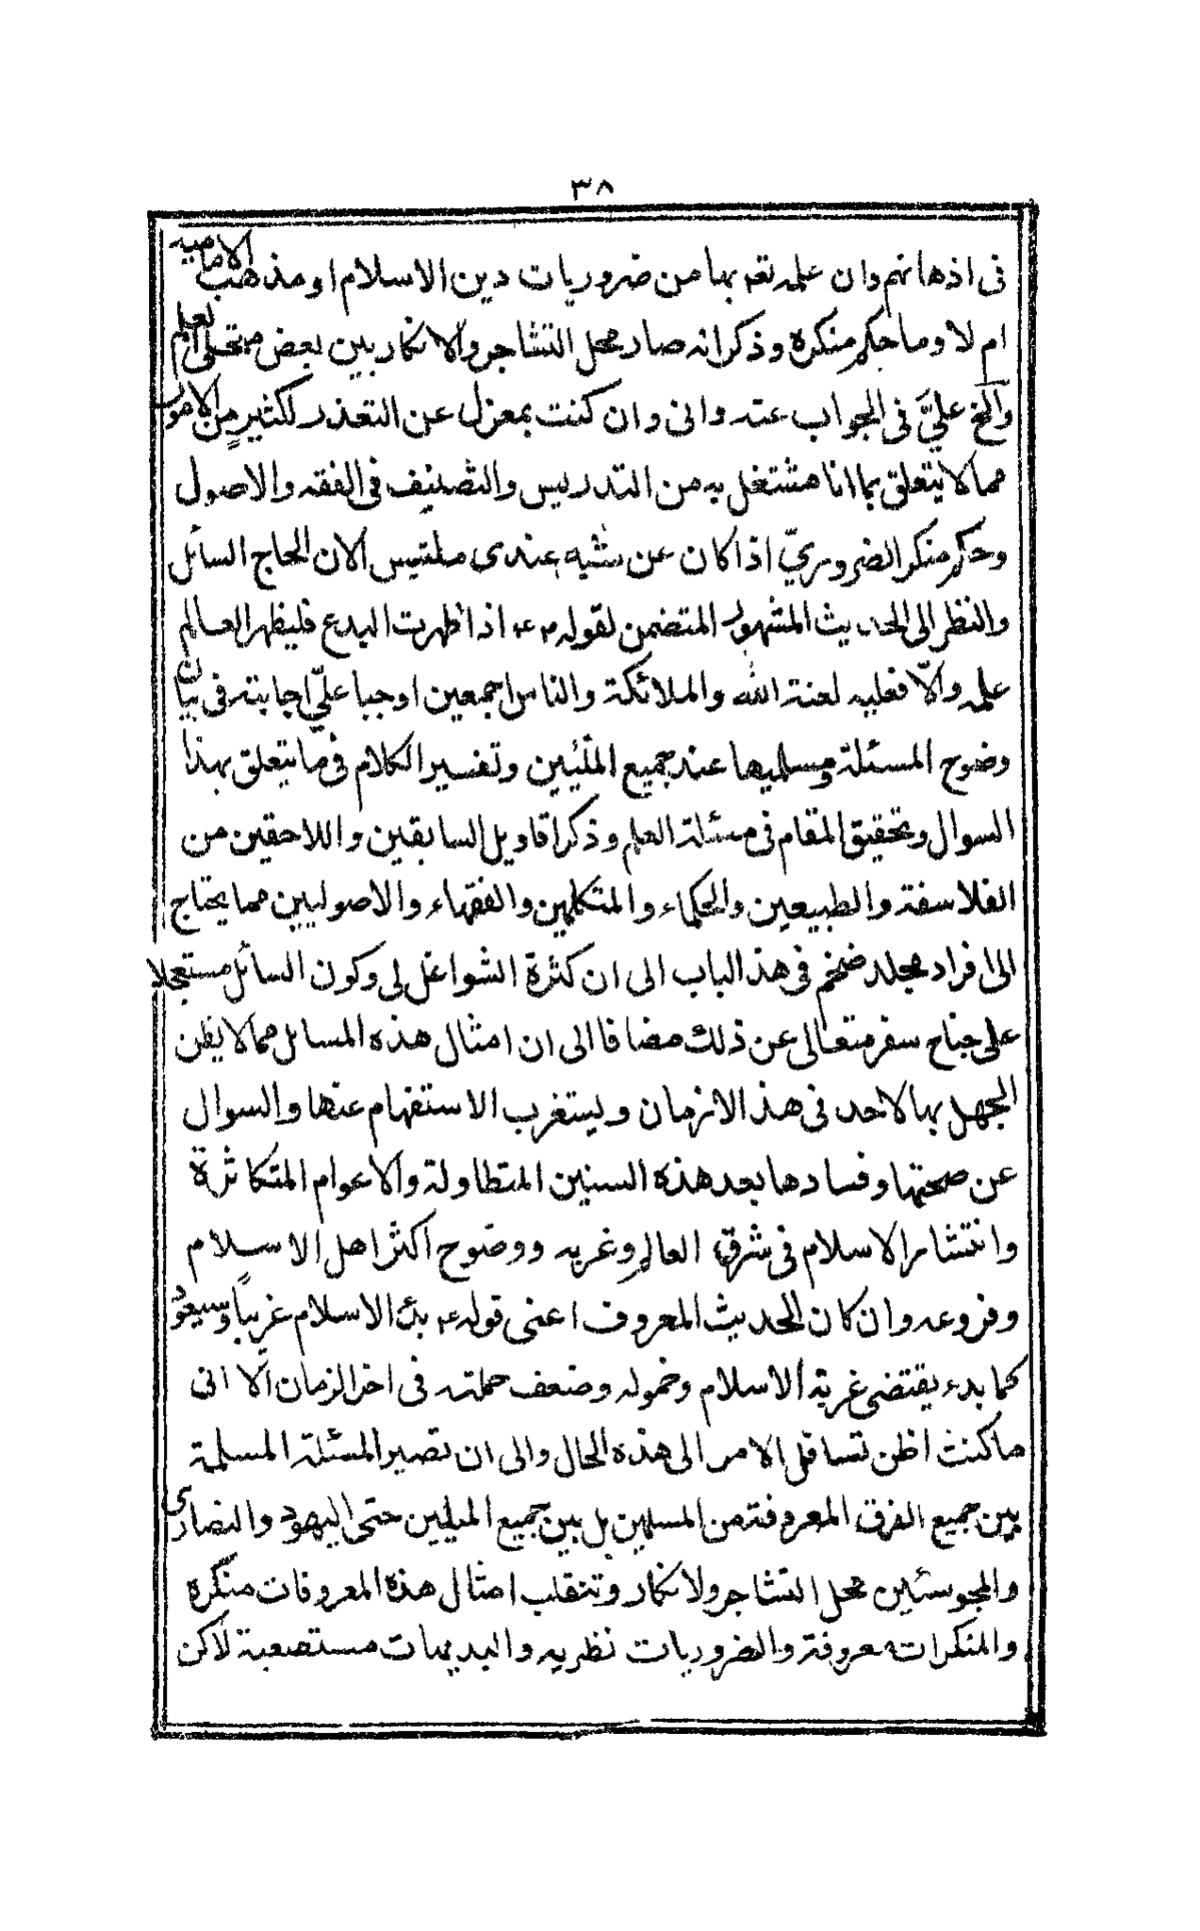 ٣٨
فى اذهانهم وان علمه تعه بها من ضروريات دين الاسلام او مذهب الاماميه
ام لا وما حكم منكره وذكر انه صار محل التشاجر والانكار بين بعض منتحلى العلم
والح علىَّ فى الجواب عنه وانى وان كنت بمعزل عن التعذر لكثير من الامور
مما لا يتعلق بما انا مشتغل به من التدريس والتصنيف فى الفقه والاصول
وحكم منكر الضروريّ اذا كان عن شبهه عندى ملتبس الان الحاج السائل
والنظر الى الحديث المشهور المتضمن لقوله ع اذا ظهرت البدع فليظهر العالم
علمه والّا فعليه لعنة الله والملائكة والناس اجمعين اوجبا علىّ اجابته فى بيان
وضوح المسئلة ومسلميها عند جميع الملّيين وتفسير الكلام فى ما يتعلق بهذا
السوال وتحقيق المقام فى مسئلة العلم وذكر اقاويل السابقين واللاحقين من
الفلاسفة والطبيعين والحكماء والمتكلمين والفقهاء والاصوليين مما يحتاج
الى افراد مجلد ضخم فى هذ الباب الى ان كثرة الشواغل لى وكون السائل مستعجلا
على جناح سفر متعالى عن ذلك مضافا الى ان امثال هذه المسايل مما لا يظن
الجهل بها لاحد فى هذ الازمان ويستغرب الاستفهام عنها والسوال
عن صحتها وفسادها بعد هذه السنين المتطاولة والاعوام المتكاثرة
وانتشار الاسلام فى شرق العالم وغربه ووضوح اكثر اهل الاسلام
وفروعه وان كان الحديث المعروف اعنى قوله ع بدء الاسلام غريبًا وسيعود
كما بدء يقتضى غربة الاسلام وخموله وضعف حملته فى اخر الزمان الّا انى
ما كنت اظن تسافل الامر الى هذه الحال والى ان تصير المسئلة المسلمة
بين جميع الفرق المعروفة من المسلمين بل بين جميع المليين حتى اليهود والنصارى
والمجوسئين محل التشاجر ولانكار وتنقلب امثال هذه المعروفات منكرة
والمنكرات معروفة والضروريات نظريه والبديهيات مستصعبة لاكن